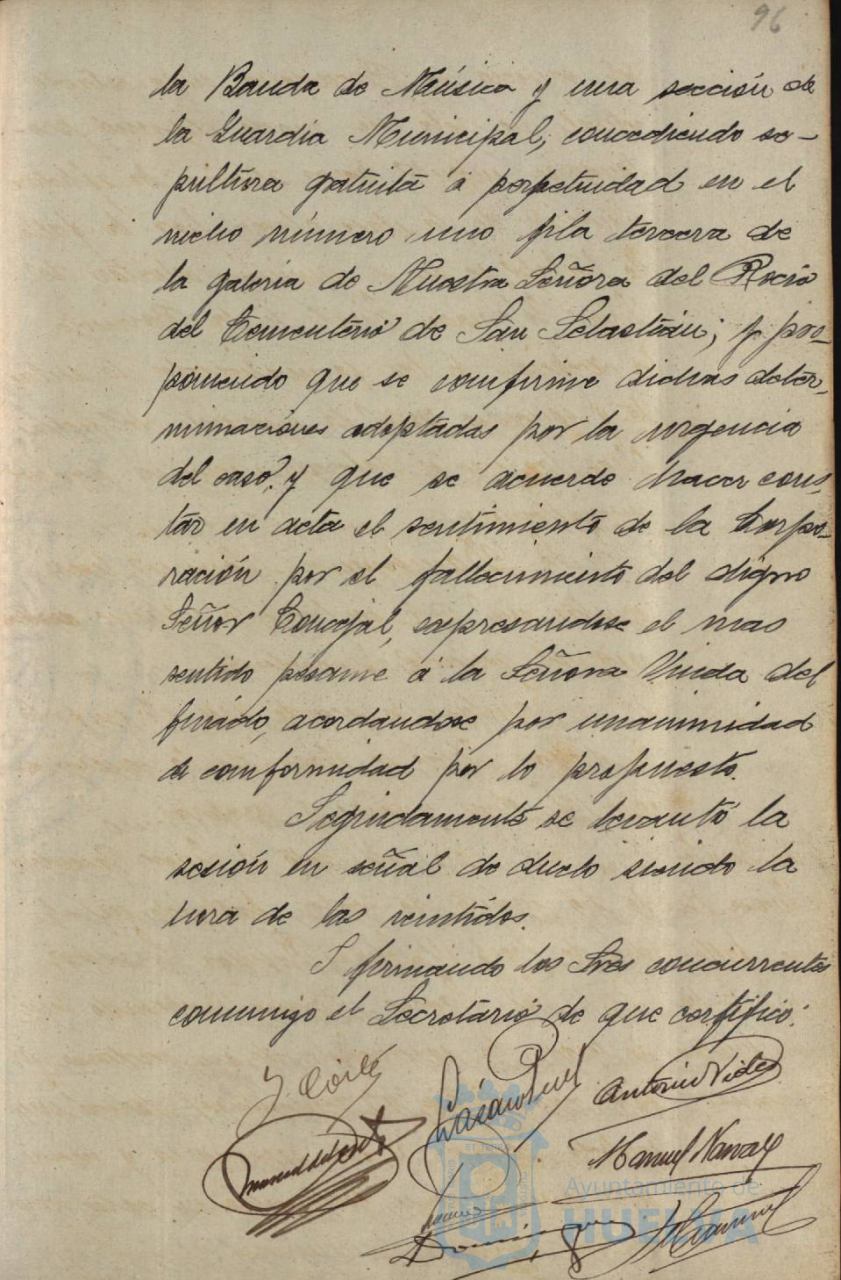 96
la Banda de Música y una sección de
la Guardia Municipal, concediendo se-
pultura gratuita á perpetuidad en el
nicho número uno fila tercera de
la galeria de Nuestra Señora del Rocio
del Cementerio de San Sebastián; y pro-
poniendo que se confirme dichas deter-
minaciones adoptadas por la urgencia
del caso, y que se acuerde hacer cons-
tar en acta el sentimiento de la Corpo-
ración por el fallecimiento del digno
Señor Concejal, expresandose el mas
sentido pésame á la Señora Viuda del
finado, acordandose por unanimidad
de conformidad por lo propuesto.
Seguidamente se levantó la
sesión en señal de duelo siendo la
hora de las veintidos.
Y firmando los Sres concurrentes
conmigo el Secretario de que certifico.
Antonio
Manuel
Dominguez
Ayuntamiento de
HUELVA